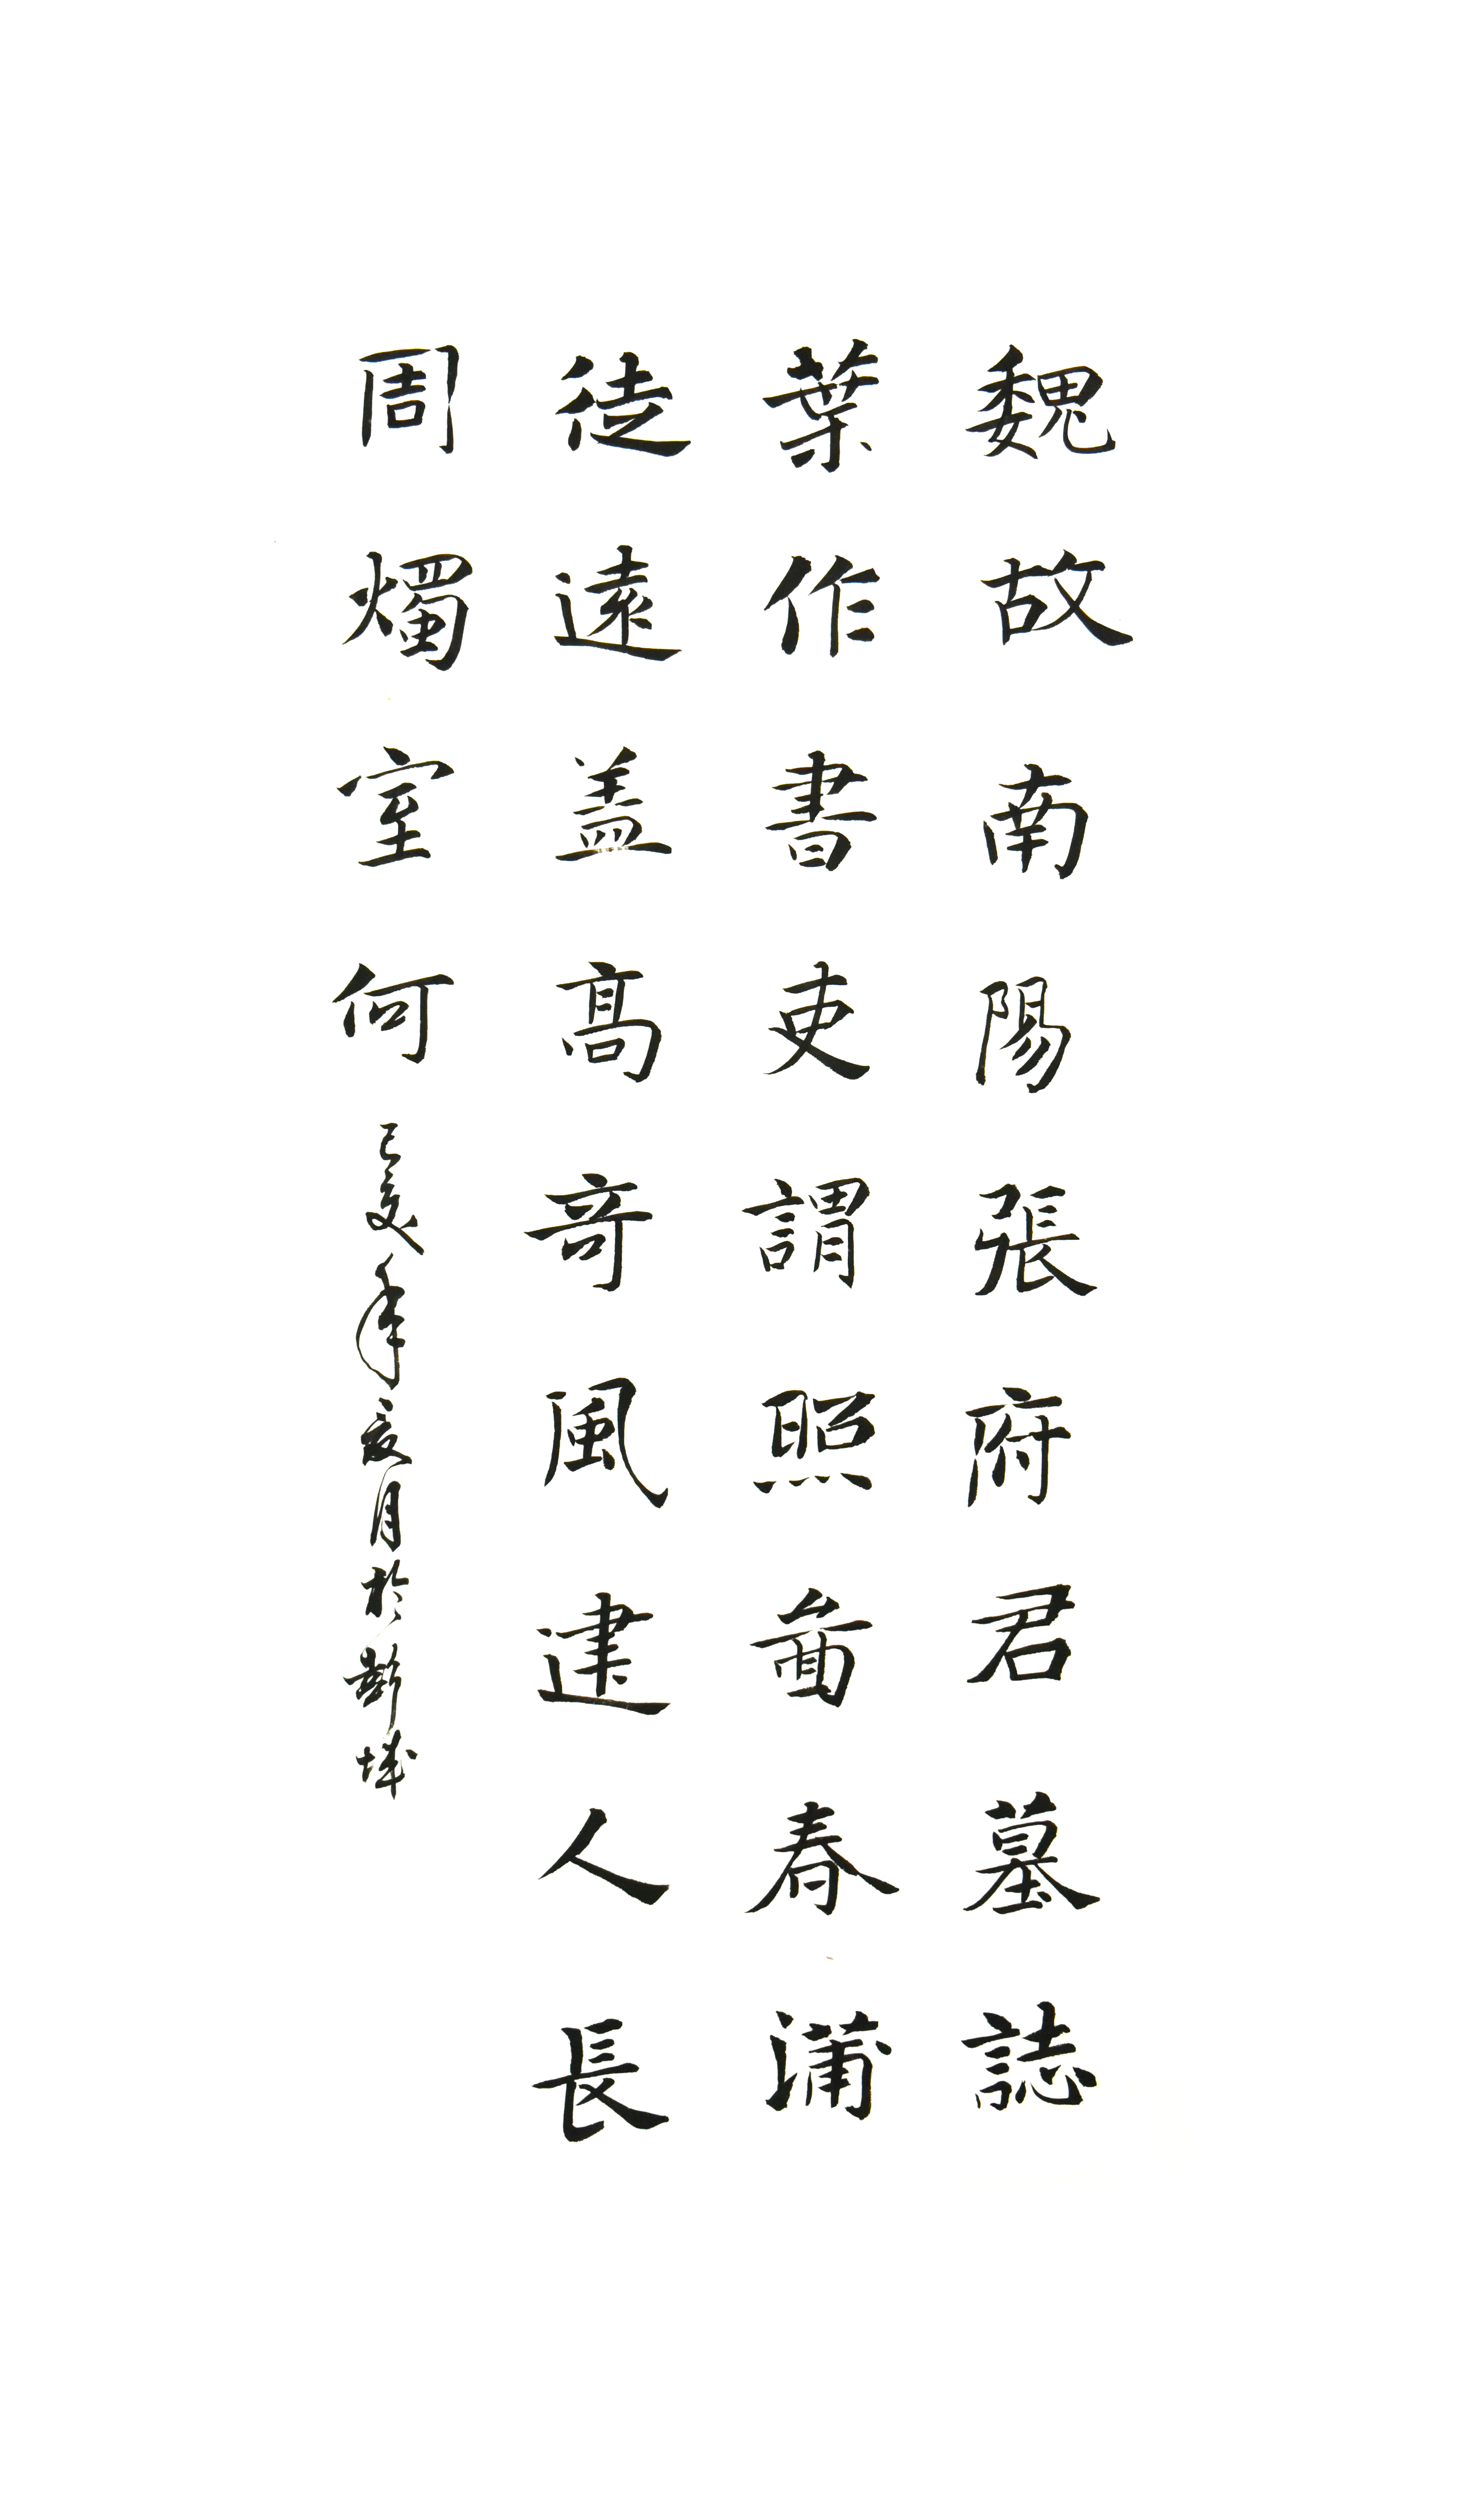 魏故南陽張府君墓誌
葉作書吏謂照春蒲
徒遠蓋高奇風建人長
周燭室何
年月於城